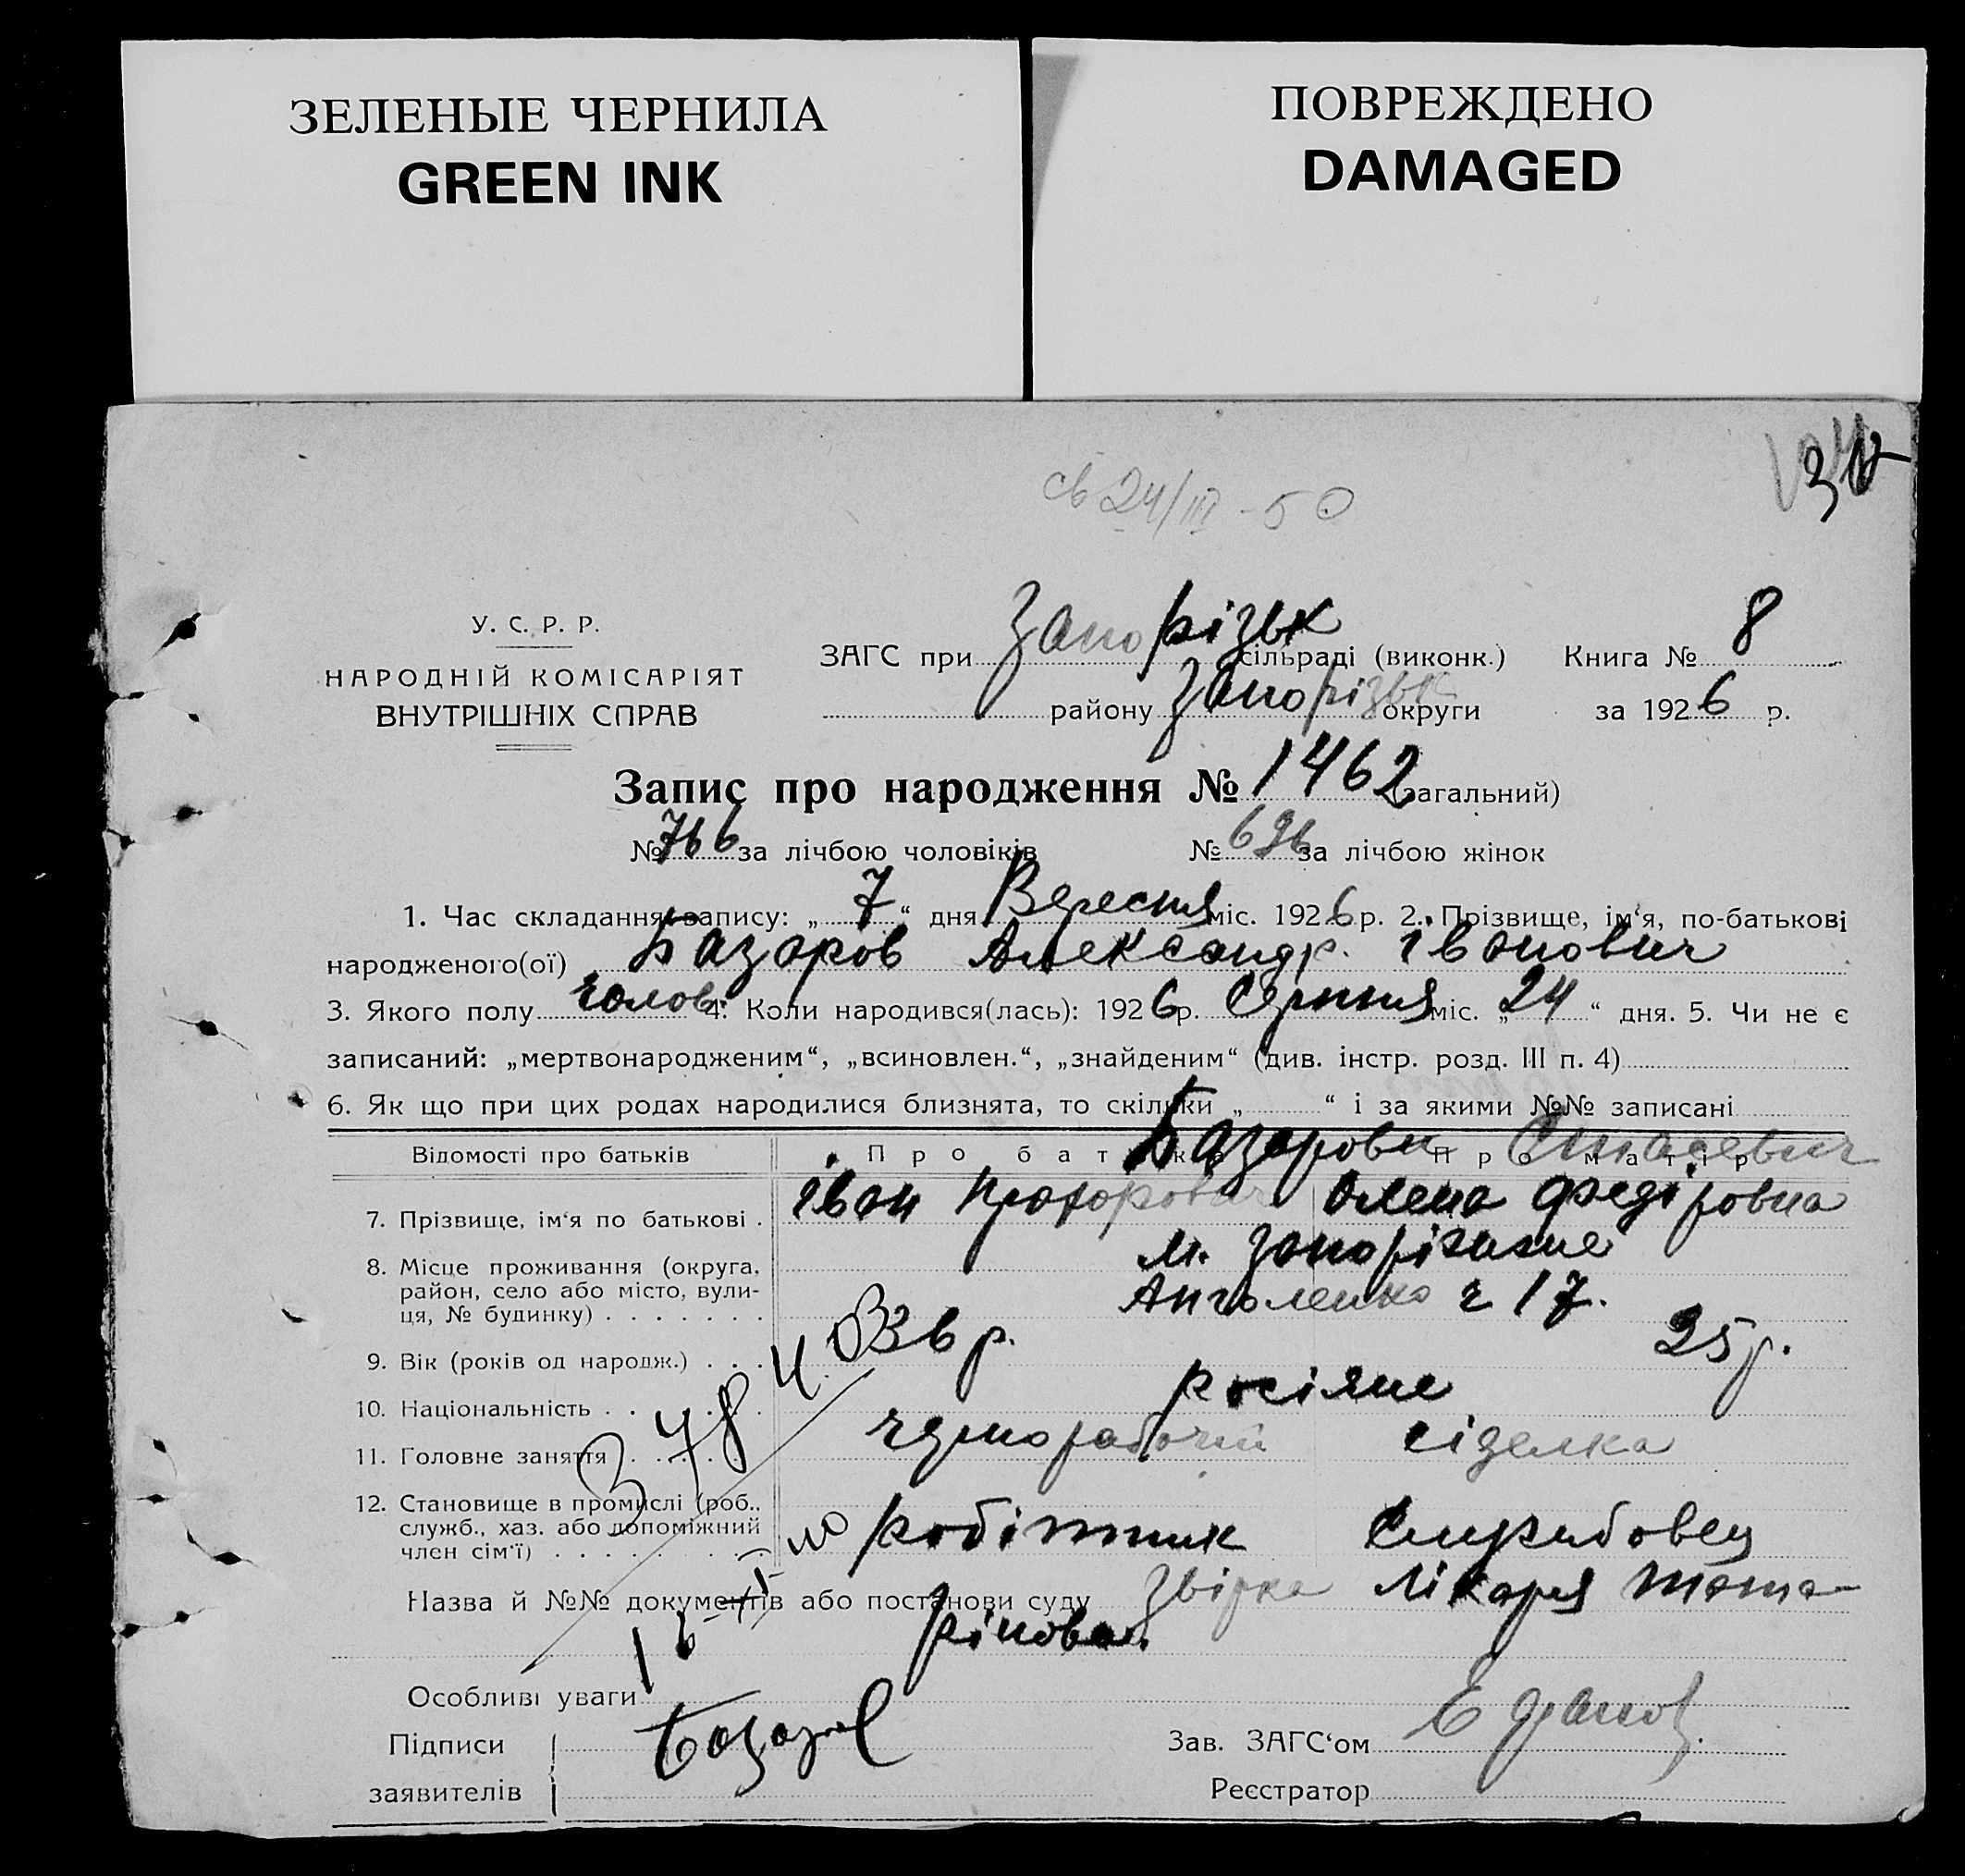 ЗЕЛЕНЫЕ ЧЕРНИЛА
GREEN INK
ПОВРЕЖДЕНО
DAMAGED
св 24/III - 50
У. С. Р. Р.
НАРОДНІЙ КОМІСАРІЯТ
ВНУТРІШНІХ СПРАВ
ЗАГС при Запорізьк сільраді (виконк.) Книга № 8
району Запорізьк округи за 1926 р.
Запис про народження № 1462 (загальний)
№ 766 за лічбою чоловіків № 696 за лічбою жінок
1. Час складання запису: „ 7 “ дня Вересня міс. 1926 р. 2. Прізвище, ім‘я, по-батькові
народженого(ої) Базаров Александр Івонович
3. Якого полу чолов. 4. Коли народився(лась): 1926 р. Серпня міс. „ 24 “ дня. 5. Чи не є
записаний: „мертвонародженим“, „всиновлен.“, „знайденим“ (див. інстр. розд. III п. 4)
6. Як що при цих родах народилися близнята, то скільки „ “ і за якими №№ записані
Відомості про батьків Про батька Про матір
Базарови
7. Прізвище, ім‘я по батькові . Іван Прохорович Олена Федіровна
8. Місце проживання (округа, район, село або місто, вулиця, № будинку) м. Запоріжжє
ч 17.
9. Вік (років од народж.) . . . 36 р. 25 р.
10. Національність . . . росіяне
11. Головне заняття . . . чернорабочий сіделка
12. Становище в промислі (роб., служб., хаз. або допоміжний член сім‘ї) . . . робітник
Назва й №№ документів або постанови суду Звірка Лікаря Тата-
рінова.
Особливі уваги
Підписи
заявителів
Базаров
Зав. ЗАГС‘ом
Реєстратор